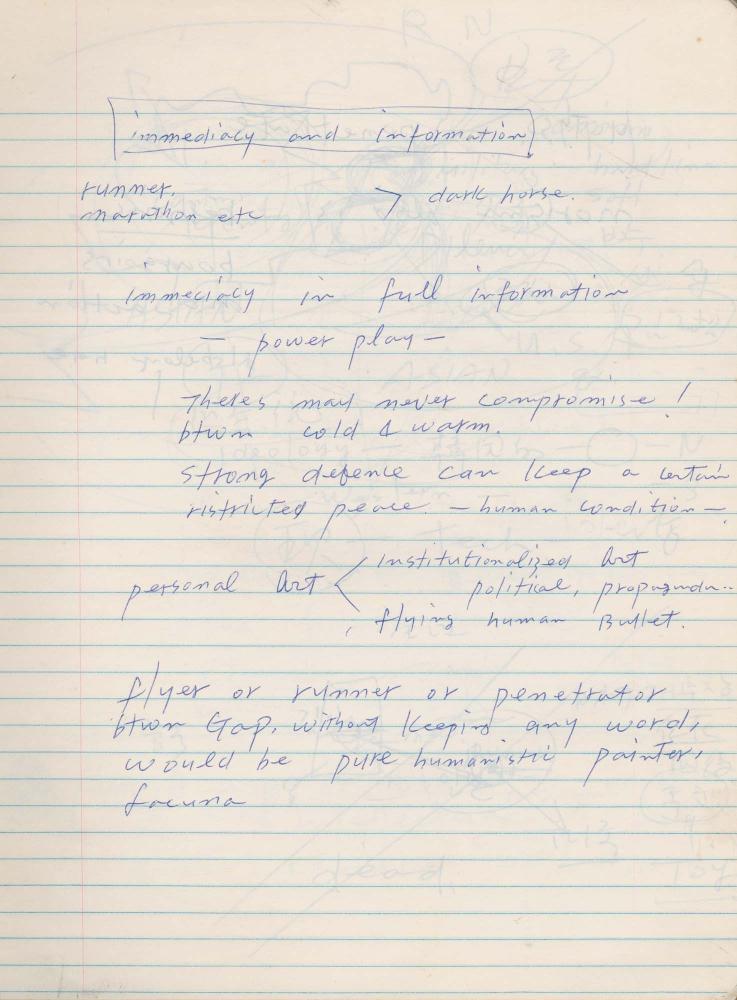 immediacy and information
runner,
marathon etc > dark horse.
immeciacy in full information
— power play —
Theres may never compromise !
btwn cold & warm.
strong defence can keep a certain
ristricted peace. — human condition —
personal Art < institutionalized Art
political, propaganda..
, flying human Bullet.
flyer or runner or penetrator
btwn Gap, without keeping any word,
would be pure humanistic painter,
lacuna
dead.